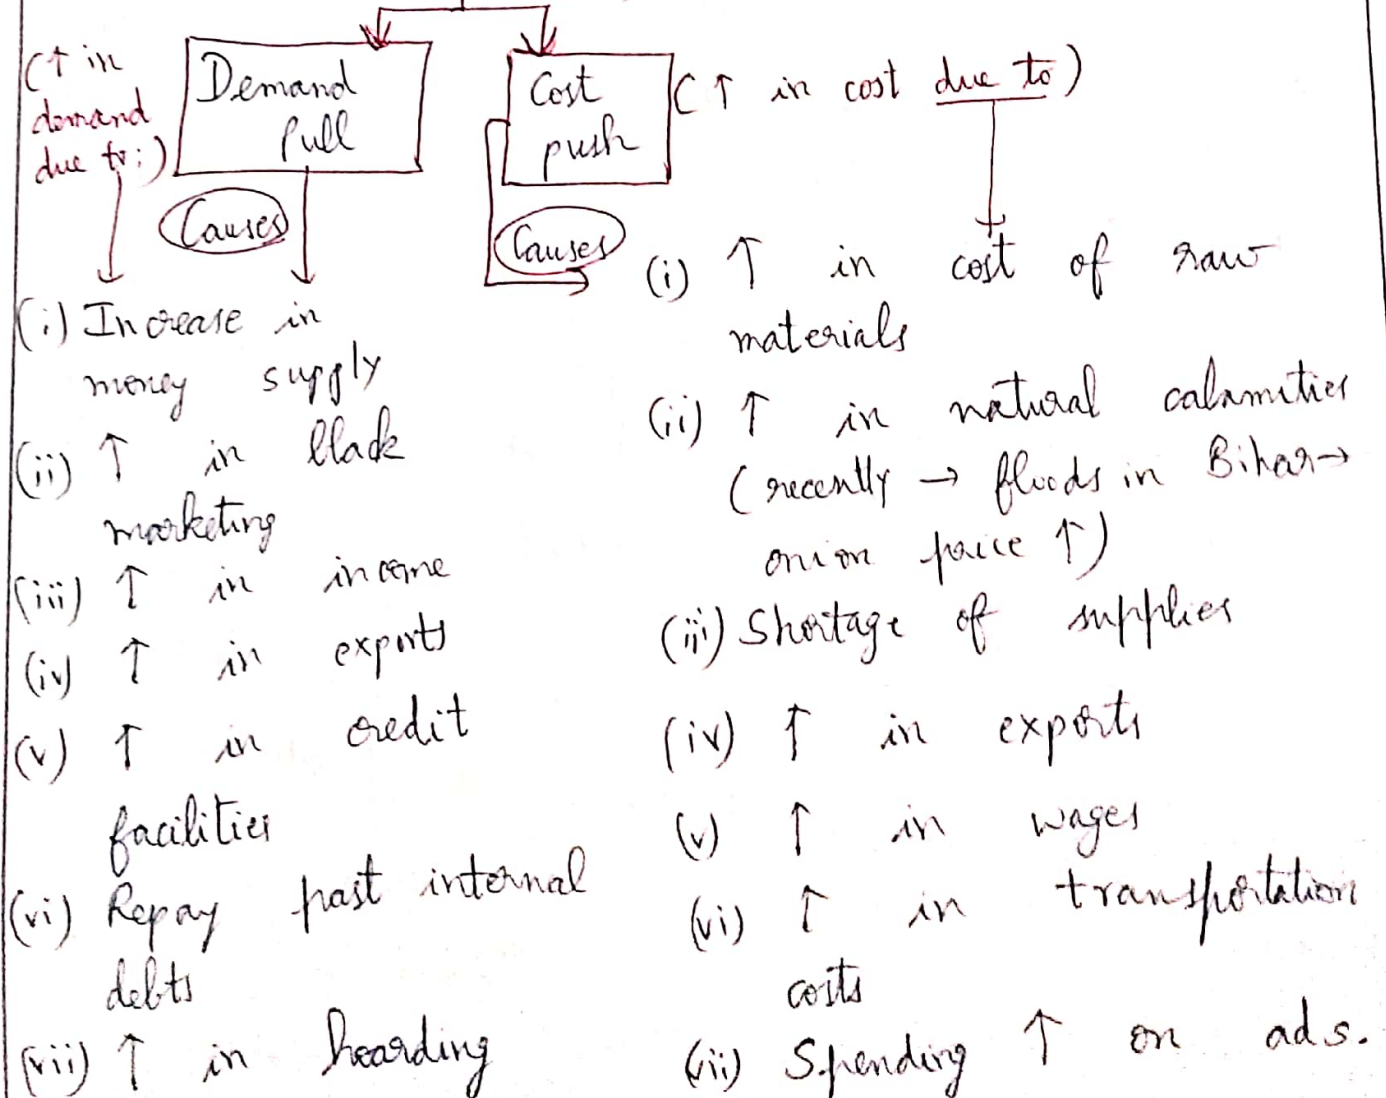 (↑ in
demand
due to:)
Demand
Pull
Cost
push
(↑ in cost due to)
Causes
Causes
(i) Increase in
money supply
(ii) ↑ in black
marketing
(iii) ↑ in income
(iv) ↑ in exports
(v) ↑ in credit
facilities
(vi) Repay past internal
debts
(vii) ↑ in hoarding
(i) ↑ in cost of raw
materials
(ii) ↑ in natural calamities
(recently → floods in Bihar→
onion price ↑)
(iii) Shortage of supplies
(iv) ↑ in exports
(v) ↑ in wages
(vi) ↑ in transportation
costs
(vii) Spending ↑ on ads.